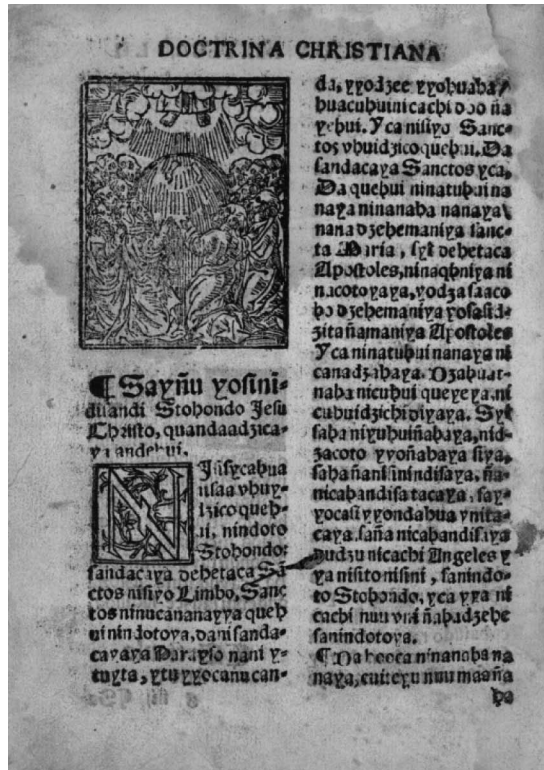 DOCTRINA CHRISTIANA
¶ Sayñu yosini-
duandi Stohondo Jesu
Christo, quandaadzica-
ya andehui.
usaa vhuy-
dzico queh-
ui, nindoto
Stohondo:
sandacaya dehetaca Sã
ctos nisiyo Limbo, Sanc
tos ninucananayya queh
ui nindotoya, dani sanda-
cayaya Parayso nani y-
tuyta, ytuyyocañucan-
da, yyodzee yyohuaha/
huacuhuinicachi doo ña
yehui. Yca nisiyo Sanc-
tos vhuidzico quehui. Da
sandacaya Sanctos yca,
Da quehui ninatuhui na
naya ninanaha nanaya\
nana dzehemaniya sanc-
ta Maria, syi dehetaca
Apostoles, ninaqhniya ni
nacotoyaya, yodza saaco
ho dzehemaniya yosasi d-
zitañamaniya Apostoles
Yca ninatuhui nanaya ni
canadzahaya. Dzahuat-
naha nicuhui queyeya, ni
cuhuidzichi diyaya. Syi
saha niyuhuiñahaya, nid-
zacoto yyoñahaya siya,
saha ñani sinindisaya. ña-
nicahandisa tacaya, say-
yocasi yyondahua ynita-
caya. saña nicahandisaya
dudzu nicachi Angeles y
ya nisito nisini, sanindo-
to Stohondo, yca yya ni
cachi nuu vni ñahadzehe
sanindotoya.
¶ Da hooca ninanaha na
naya, cuiteyu nuu maañа